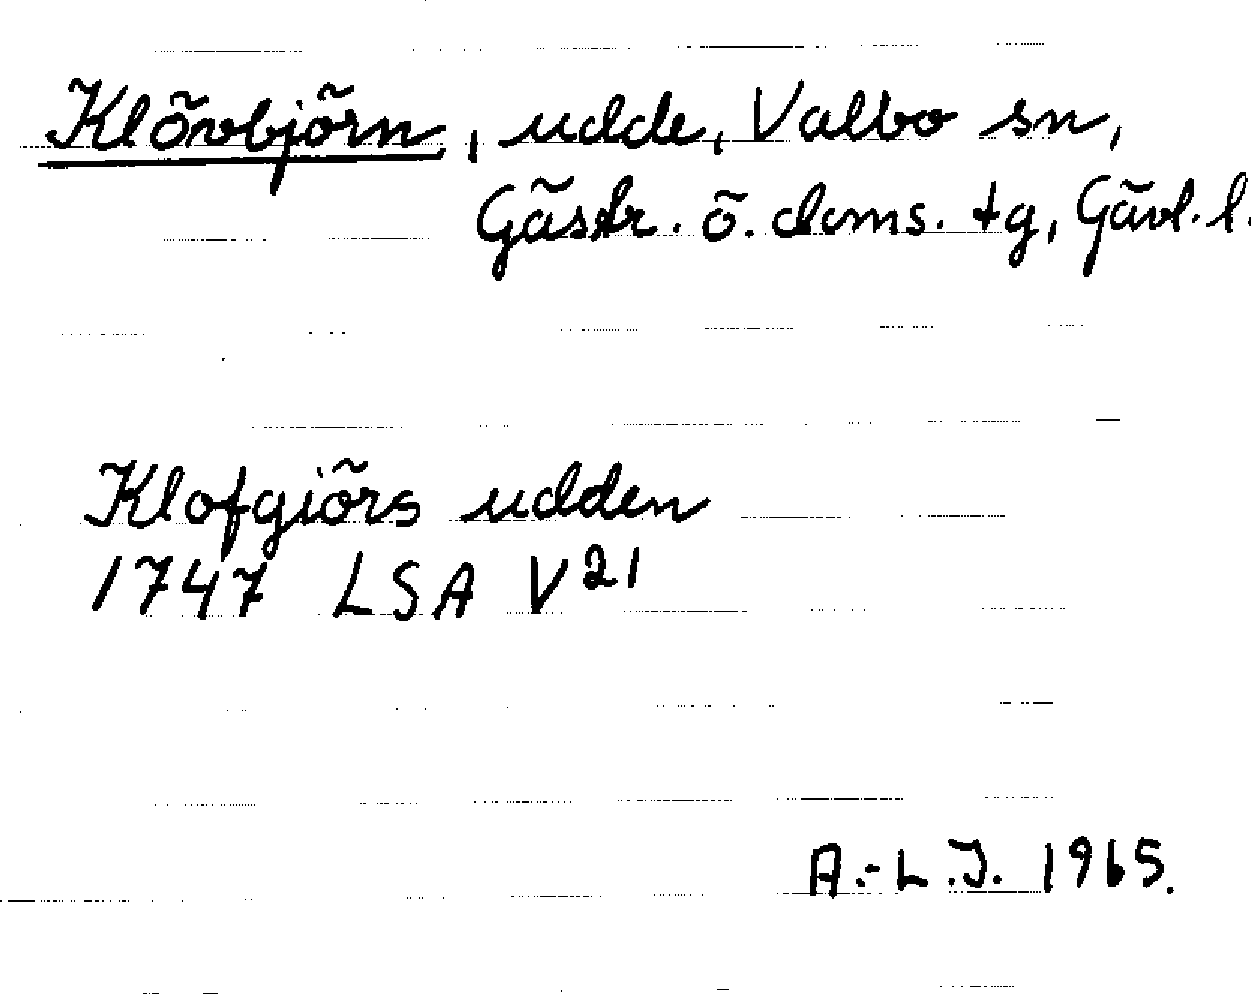 Klövbjörn, udde, Valbo sn,
Gästr. ö. doms. tg, Gävl. l.
Klofgiörs udden
1747 LSA V 21
A.-L.J. 1965.